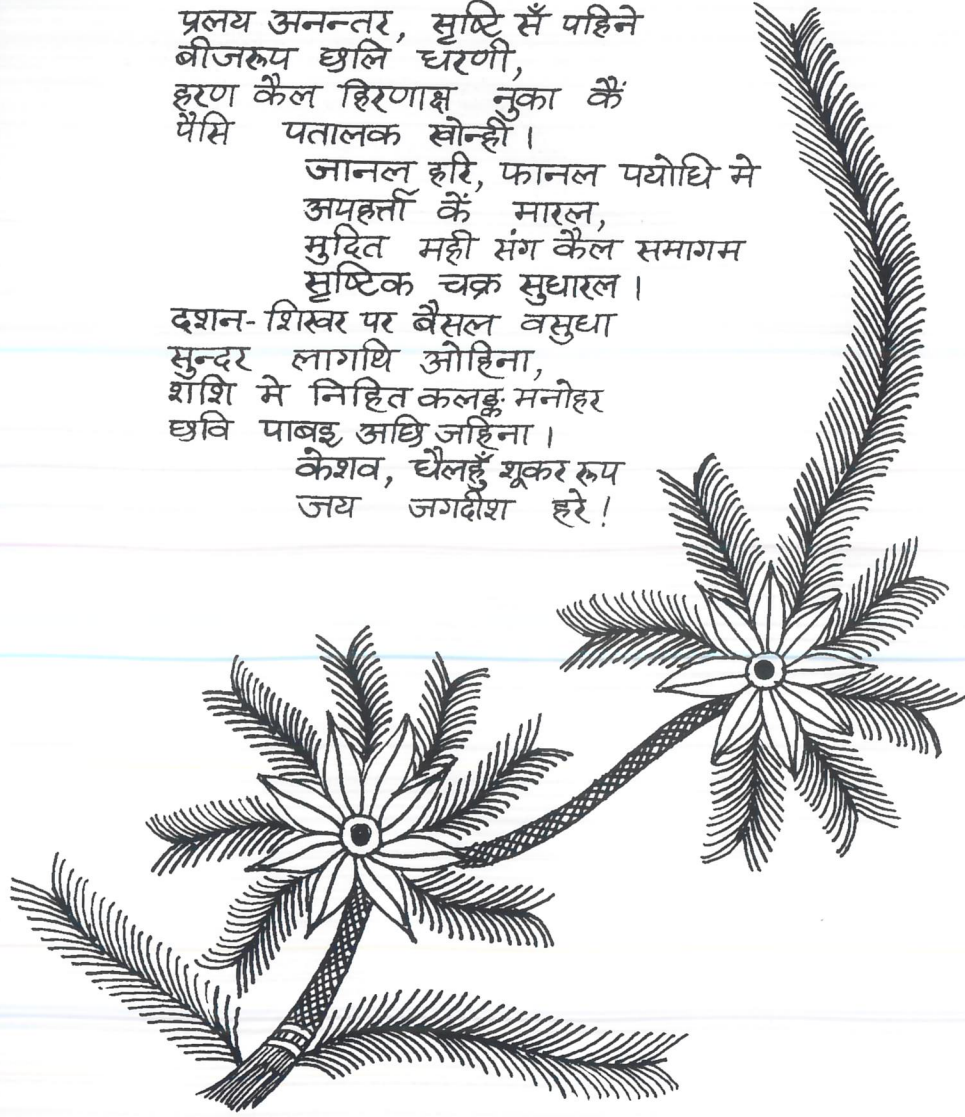 प्रलय अनन्तर, सृष्टि सँ पहिने
बीजरूप छलि धरणी,
हरण कैल हिरणाक्ष नुका कैं
पैसि पतालक खोन्ही।
जानल हरि, फानल पयोधि मे
अपहर्त्ता कें मारल,
मुदित मही संग कैल समागम
सृष्टिक चक्र सुधारल।
दशन-शिखर पर बैसल वसुधा
सुन्दर लागथि ओहिना,
शशि मे निहित कलङ्क मनोहर
छवि पाबइ अछि जहिना।
केशव, धैलहुँ शूकर रूप
जय जगदीश हरे!